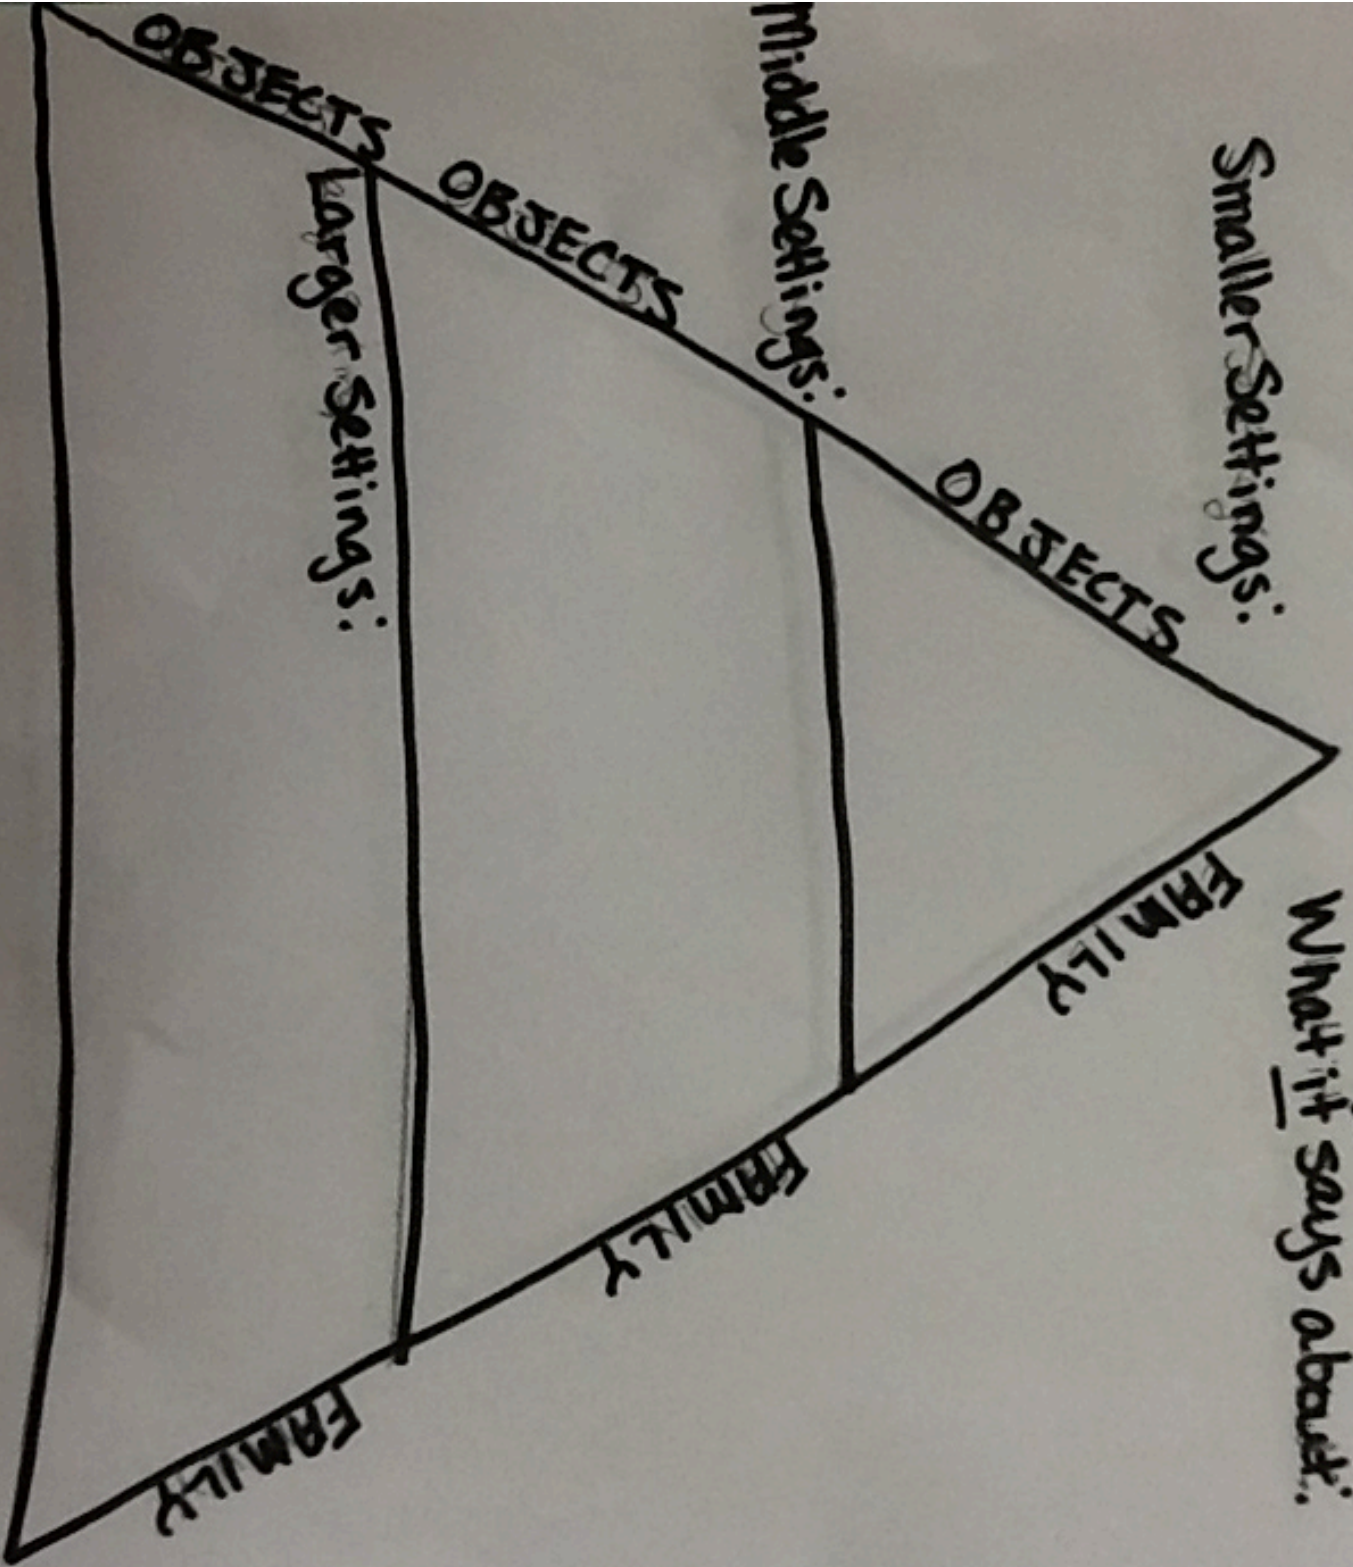 What it says about:
Smaller Settings:
OBJECTS
FAMILY
Middle Settings:
OBJECTS
FAMILY
Larger Settings:
OBJECTS
FAMILY